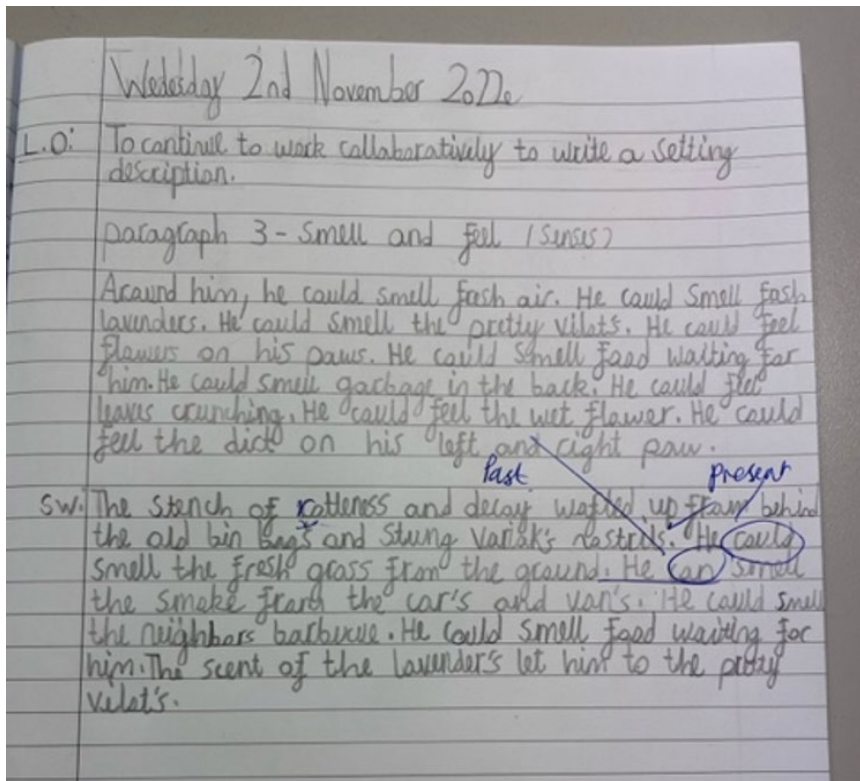 Wedesday 2nd November 2022
L.O: To continue to work collaboratively to write a setting
description.
paragraph 3 - Smell and feel (Senses)
Around him, he could smell fash air. He could Smell fash
lavenders. He could smell the pretty vilats. He could feel
flawers on his paws. He could Smell food waiting for
him. He could smell garbage in the back. He could feel
leaves crunching. He could feel the wet flower. He could
feel the dirt on his left and right paw.
Past present
SW: The stench of rotteness and decay wafted up from behind
the old bin bags and Stung Variak's nostrils. He could
smell the fresh grass from the ground. He can smell
the smoke from the car's and van's. He could smell
the neighbars barbecue. He could smell food waiting for
him. The scent of the lavunder's let him to the pretty
vilat's.